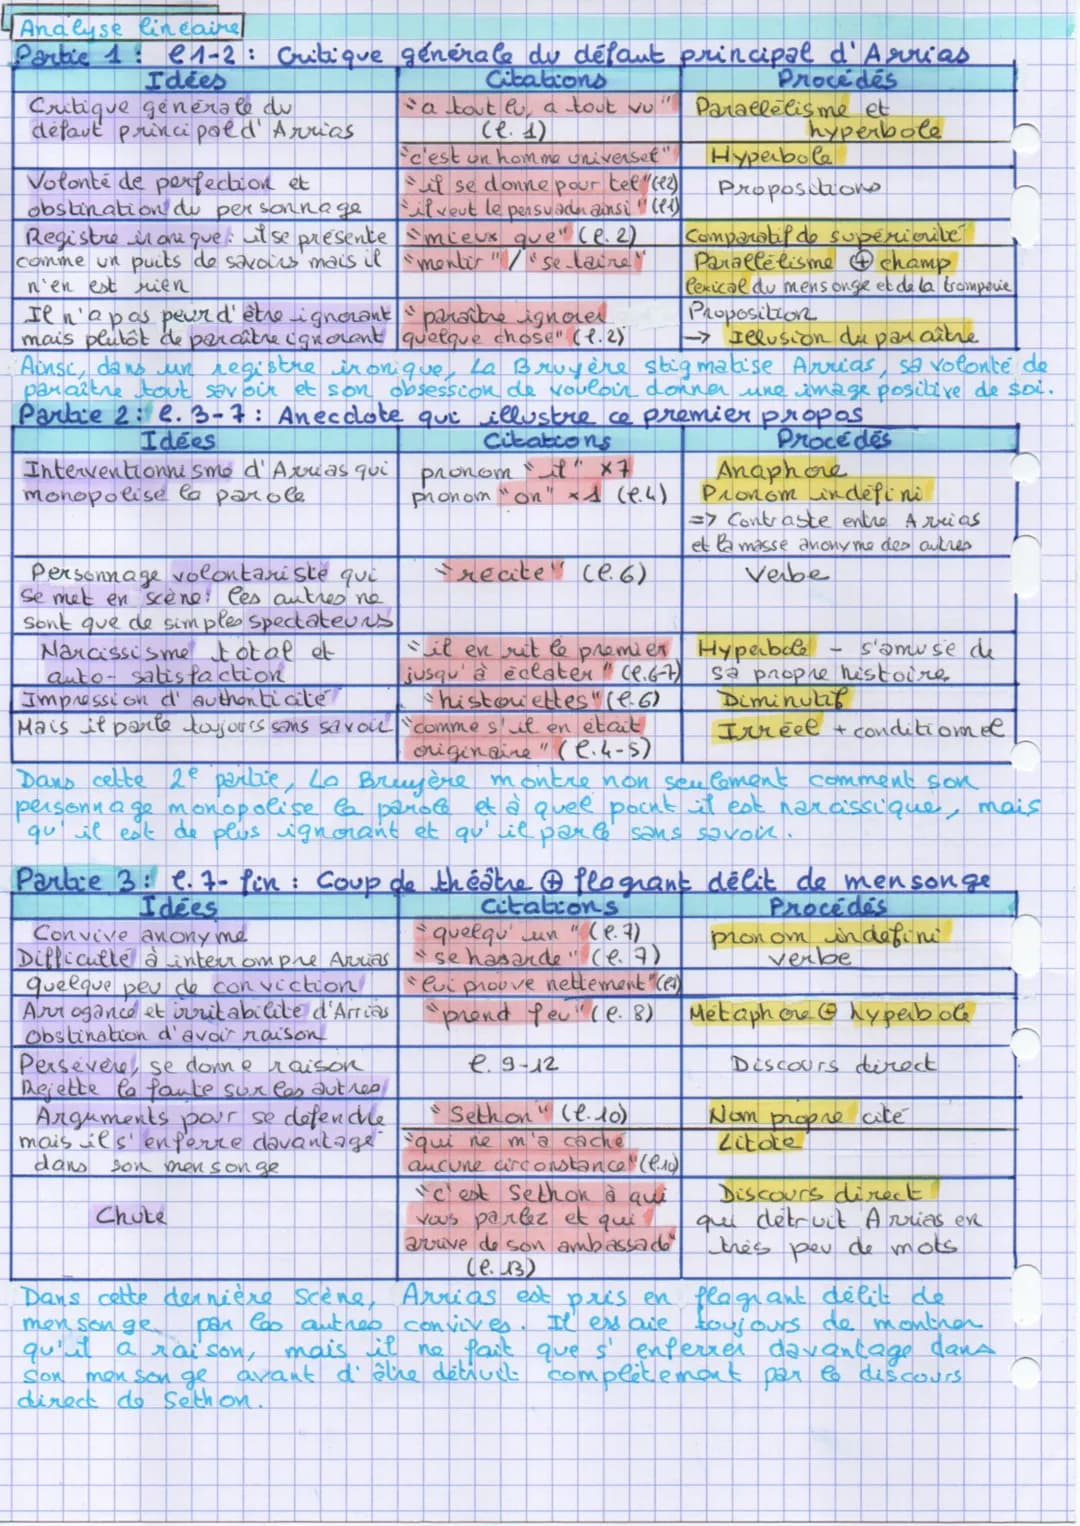 Analyse linéaire
Partie 1 : l1-2 : Critique générale du défaut principal d'Arrias
Idées Citations Procédés
Critique générale du "a tout lu, a tout vu" Parallélisme et
défaut principal d'Arrias (l. 1) hyperbole
"c'est un homme universel" Hyperbole
Volonté de perfection et "il se donne pour tel" (l2) Propositions
obstination du personnage "il veut le persuader ainsi" (l1)
Registre ironique : il se présente "mieux que" (l. 2) Comparatif de supériorité
comme un puits de savoirs mais il "mentir" / "se taire" Parallélisme + champ
n'en est rien lexical du mensonge et de la tromperie
Il n'a pas peur d'être ignorant "paraître ignorer Proposition
mais plutôt de paraître ignorant quelque chose" (l. 2) → Illusion du paraître
Ainsi, dans un registre ironique, La Bruyère stigmatise Arrias, sa volonté de
paraître tout savoir et son obsession de vouloir donner une image positive de soi.
Partie 2 : l. 3-7 : Anecdote qui illustre ce premier propos
Idées Citations Procédés
Interventionnisme d'Arrias qui pronom "il" x7 Anaphore
monopolise la parole pronom "on" x1 (l.4) Pronom indéfini
=> Contraste entre Arrias
et la masse anonyme des autres
Personnage volontariste qui "récite" (l.6) Verbe
se met en scène : les autres ne
sont que de simples spectateurs
Narcissisme total et "il en rit le premier Hyperbole - s'amuse de
auto-satisfaction jusqu'à éclater" (l.6-7) sa propre histoire
Impression d'authenticité "historiettes" (l.6) Diminutif
Mais il parle toujours sans savoir "comme s'il en était Irréel + conditionnel
originaire" (l.4-5)
Dans cette 2e partie, La Bruyère montre non seulement comment son
personnage monopolise la parole et à quel point il est narcissique, mais
qu'il est de plus ignorant et qu'il parle sans savoir.
Partie 3 : l. 7-fin : Coup de théâtre + flagrant délit de mensonge
Idées Citations Procédés
Convive anonyme "quelqu'un" (l. 7) pronom indéfini
Difficulté à interrompre Arrias "se hasarde" (l. 7) verbe
quelque peu de conviction "lui prouve nettement" (l7)
Arrogance et irritabilité d'Arrias "prend feu" (l. 8) Métaphore + hyperbole
Obstination d'avoir raison
Persévère, se donne raison l. 9-12 Discours direct
Rejette la faute sur les autres
Arguments pour se défendre "Sethon" (l.10) Nom propre cité
mais il s'enferre davantage "qui ne m'a caché Litote
dans son mensonge aucune circonstance" (l.10)
Chute "c'est Sethon à qui Discours direct
vous parlez et qui qui détruit Arrias en
arrive de son ambassade" très peu de mots
(l. 13)
Dans cette dernière scène, Arrias est pris en flagrant délit de
mensonge par les autres convives. Il essaie toujours de montrer
qu'il a raison, mais il ne fait que s'enferrer davantage dans
son mensonge avant d'être détruit complètement par le discours
direct de Sethon.